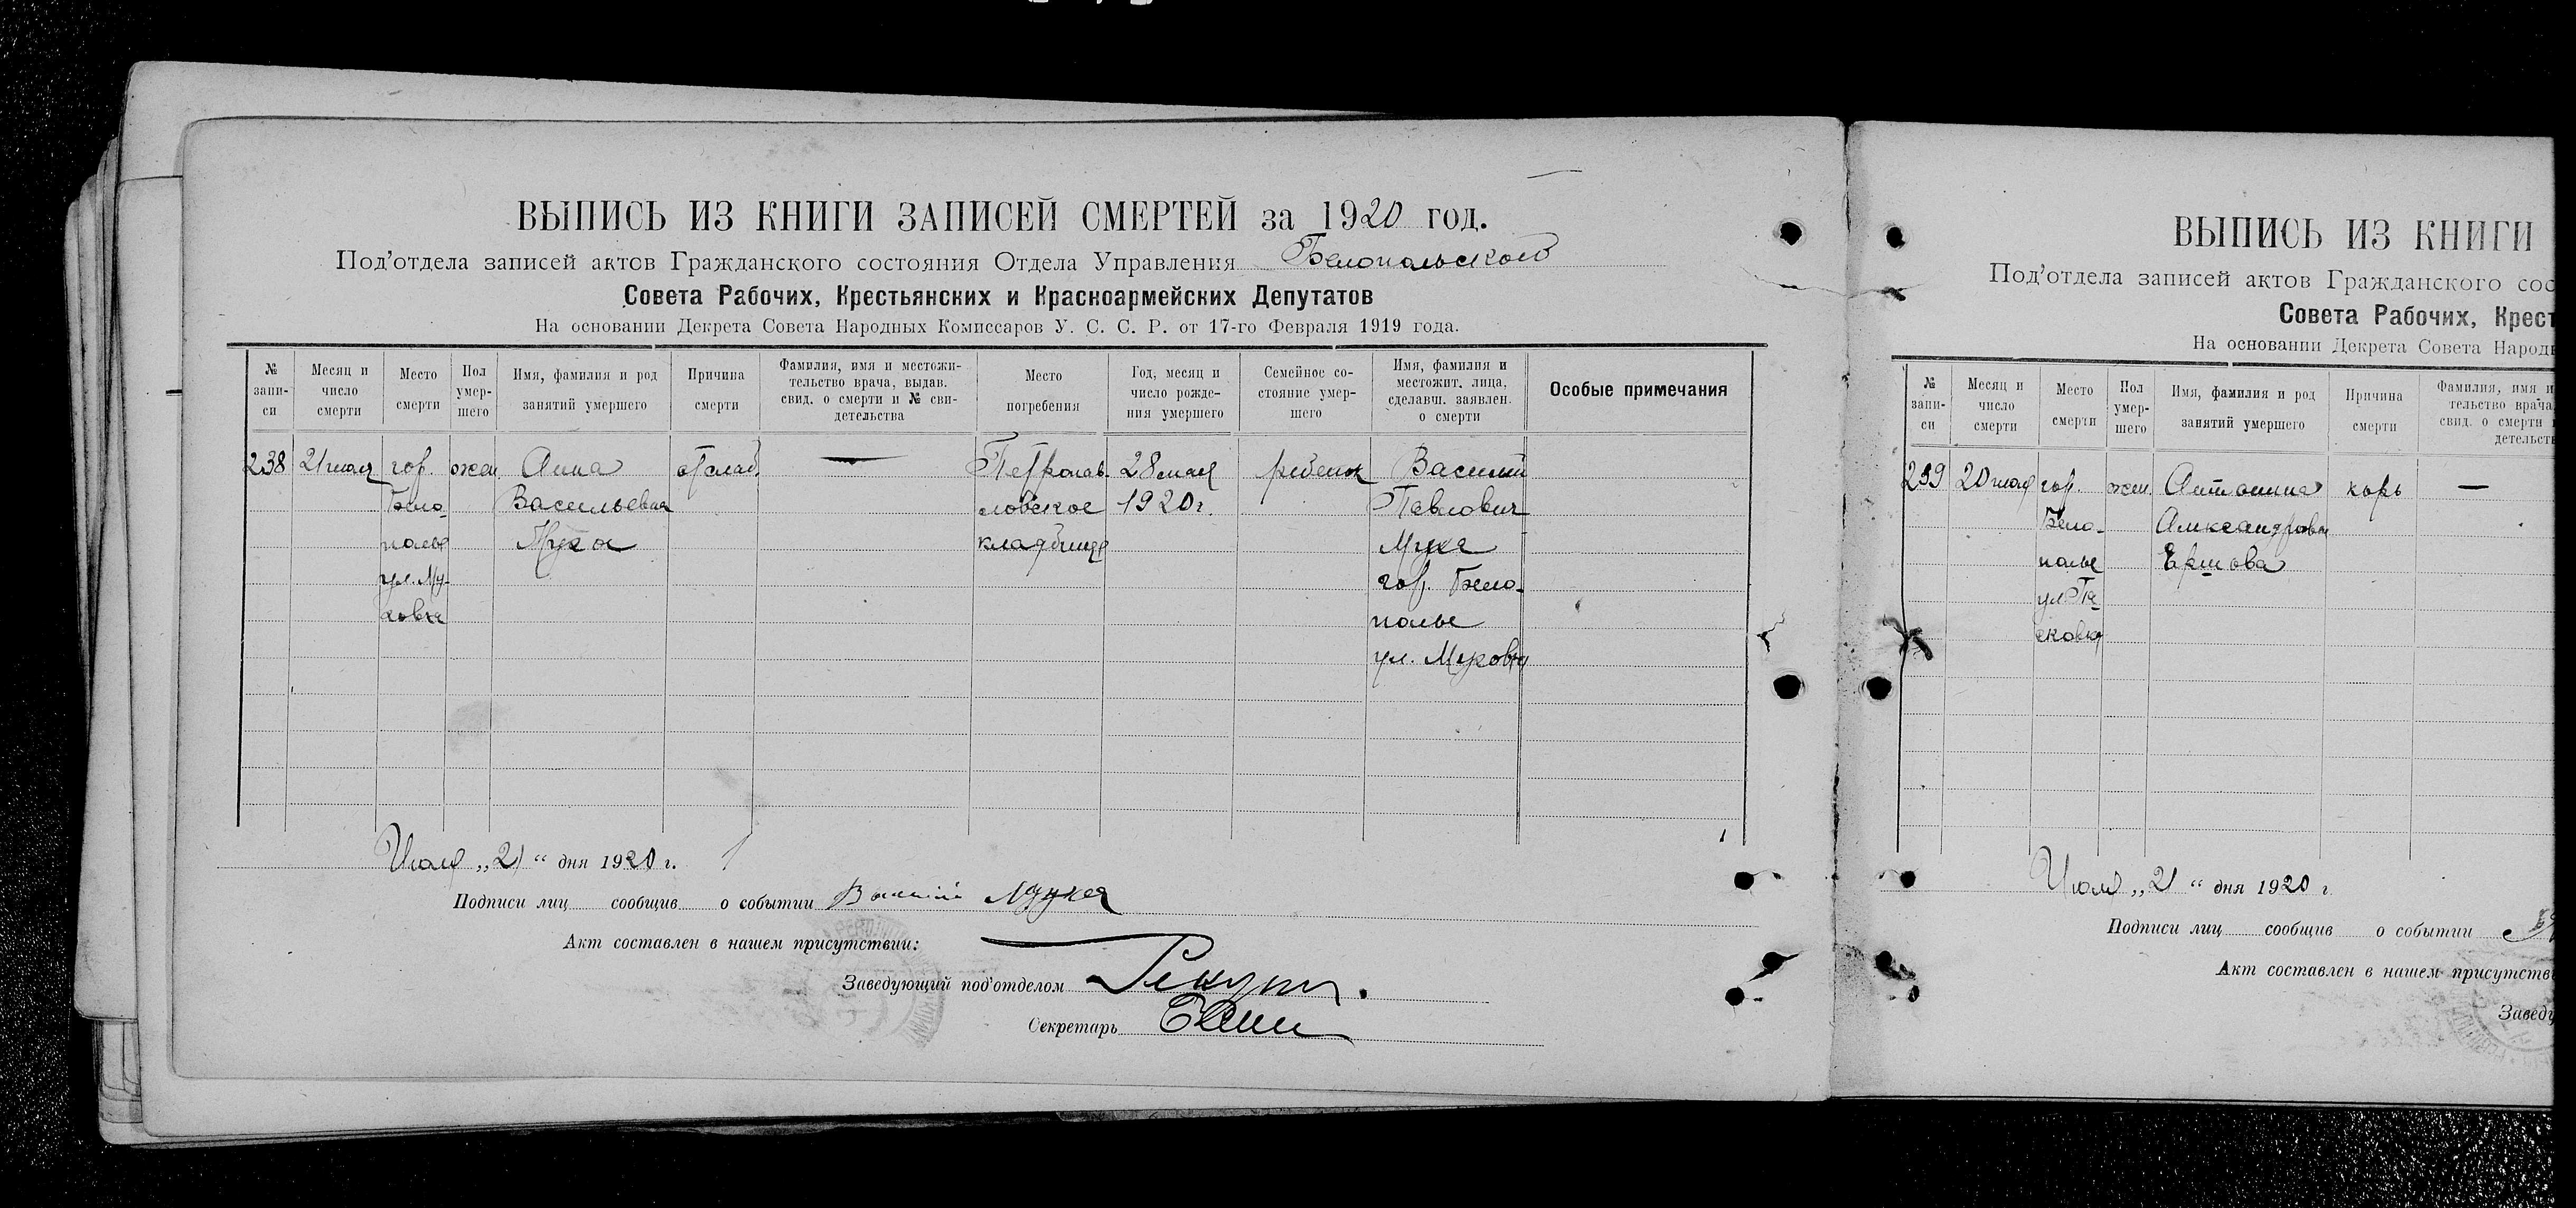 ВЫПИСЬ ИЗ КНИГИ ЗАПИСЕЙ СМЕРТЕЙ за 1920 год.
Под’отдела записей актов Гражданского состояния Отдела Управления Белопольского
Совета Рабочих, Крестьянских и Красноармейских Депутатов
На основании Декрета Совета Народных Комиссаров У. С. С. Р. от 17-го Февраля 1919 года.
№ запи-си
Месяц и число смерти
Место смерти
Пол умер-шего
Имя, фамилия и род занятий умершего
Причина смерти
Фамилия, имя и местожи-тельство врача, выдав. свид. о смерти и № сви-детельства
Место погребения
Год, месяц и число рожде-ния умершего
Семейное со-стояние умер-шего
Имя, фамилия и местожит. лица, сделавш. заявлен. о смерти
Особые примечания
238 21 июля гор. жен. Анна от слаб. — Петропав- 28 мая ребенок Василий
Бело- Васильевна ловское 1920 г. Павлович
полье Муха кладбище Муха
ул. Му- гор. Бело-
ховка полье
ул. Муховка
Июля „21“ дня 1920 г.
Подписи лиц сообщив о событии Василий Муха
Акт составлен в нашем присутствии:
Заведующий под’отделом
Секретарь
ВЫПИСЬ ИЗ КНИГИ
Под’отдела записей актов Гражданского сос
Совета Рабочих, Крест
На основании Декрета Совета Народн
№ запи-си
Месяц и число смерти
Место смерти
Пол умер-шего
Имя, фамилия и род занятий умершего
Причина смерти
Фамилия, имя и
тельство врача,
свид. о смерти
детельств
239 20 июля гор. жен. Антонина корь —
Бело- Александровна
полье Ершова
ул. Пе-
сковка
Июля „21“ дня 1920 г.
Подписи лиц сообщив о событии
Акт составлен в нашем присутстви
Заведу